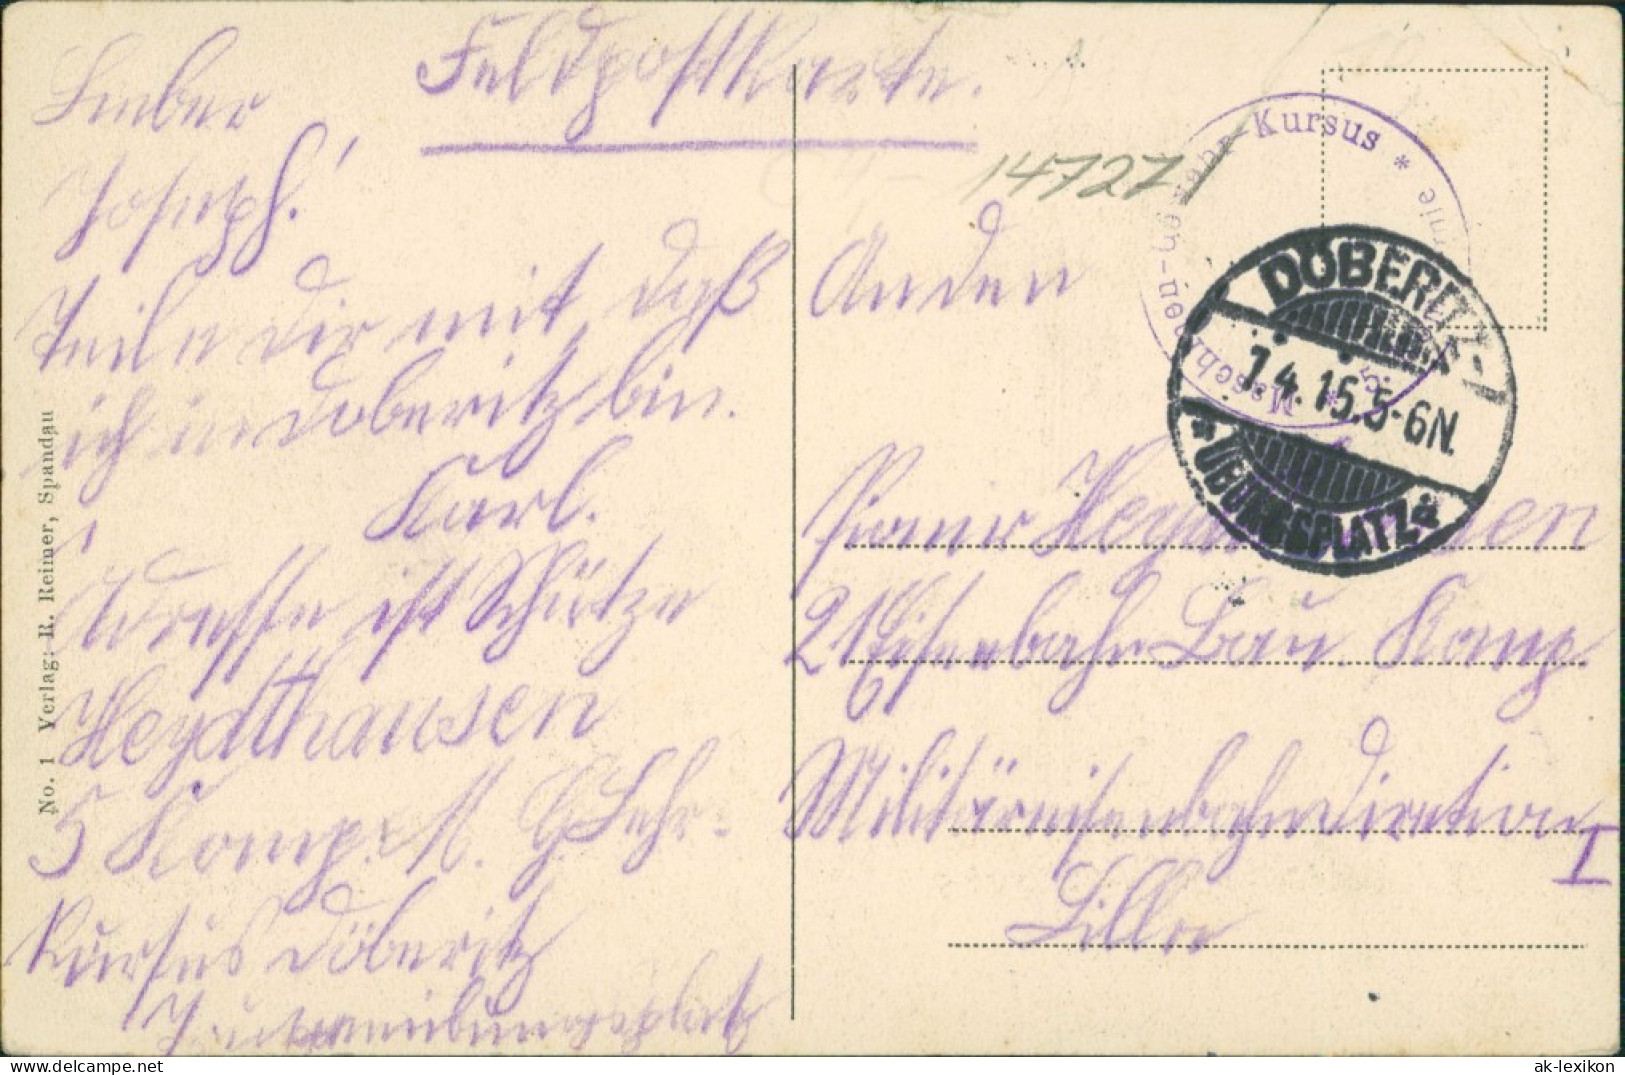 Feldpostkarte.
Lieber
Joseph!
Teile dir mit, daß
ich in Doberitz bin.
Karl.
Adresse ist Schütze
Heydthausen
5 Komp. M. G. Lehr-
Kursus Döberitz
No. 1 Verlag: R. Reiner, Spandau
14727
Kursus *
DÖBERITZ-
7.4.15.5-6N.
* ÜBUNGSPLATZ *
An den
Pionier Heydthausen
21 Eisenbahn Bau. Komp.
Militäreisenbahndirektion
I
Lille
ak-lexikon